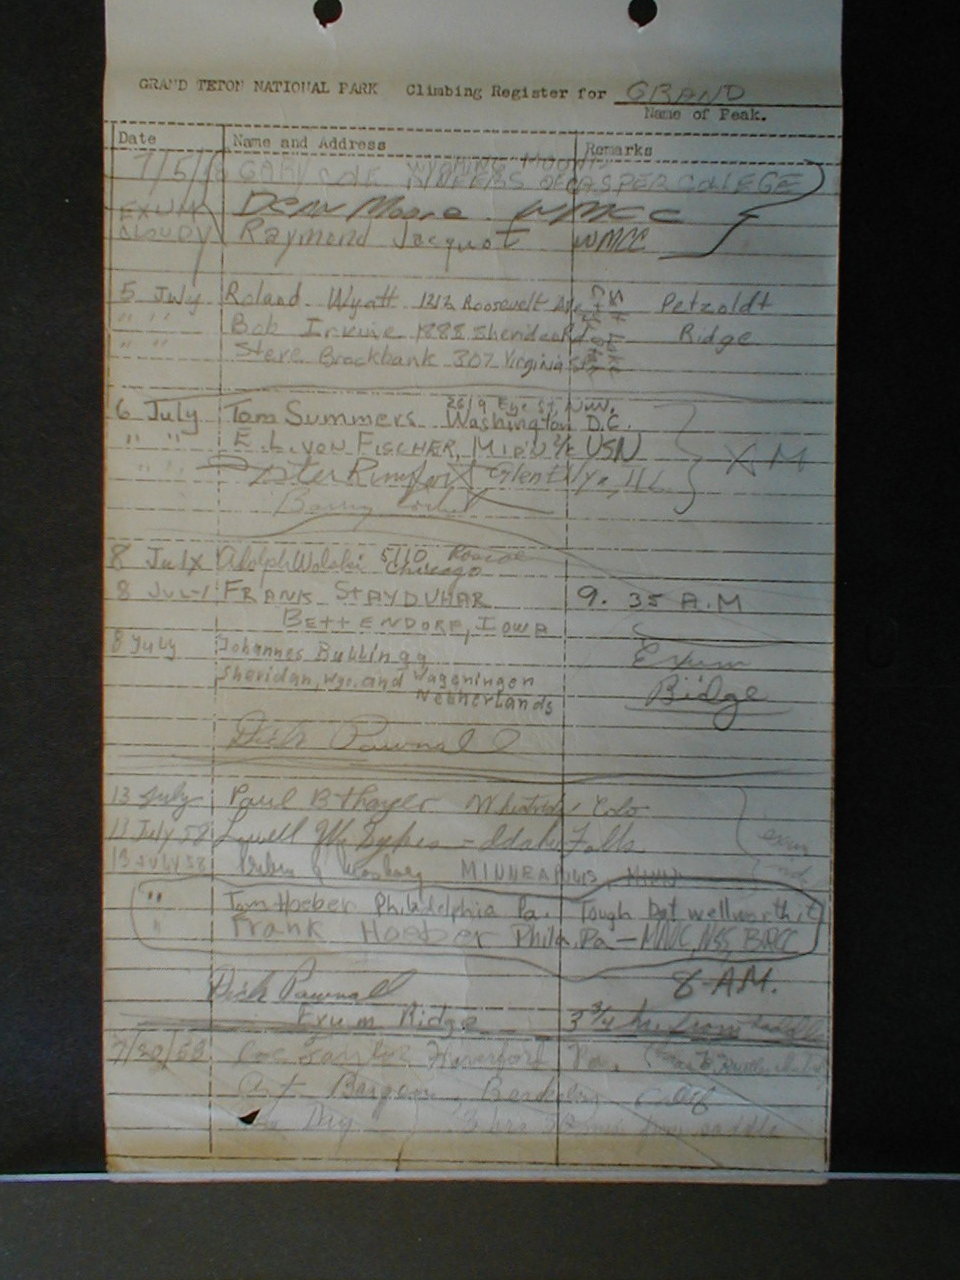 GRAND TETON NATIONAL PARK Climbing Register for GRAND
Name of Peak.
Date Name and Address Remarks
7/5/58 GARY COLE WYOMING MOUNT-
AINEERS OF CASPER COLLEGE
EXUM Dean Moore. WMCC
CLOUDY Raymond Jacquot WMCC
5 July Roland Wyatt 1212 Roosevelt Ave Petzoldt
" " Bob Irvine 1888 Sheridan Rd Ridge
" " Steve Brockbank 307 Virginia St
6 July Tom Summers 2619 Eye St. N.W.
Washington D.C.
" " E. L. VON FISCHER, MIDN 2/c USN XM
" " Glen Ellyn, ILL
Barry Corbet
8 July Adolph 5110
Chicago
8 JULY FRANK STAYDUHAR 9. 35 A.M
BETTENDORF, IOWA
8 July Johannes Exum
Sheridan, Wyo. and Wageningen Ridge
Netherlands
Dick Pownall
13 July Paul B Thayer Colo
July 58 Lowell Sykes - Idaho Falls
13 JULY 58 MINNEAPOLIS, MINN
" Tom Hoeber Philadelphia Pa. Tough but well worth it
" Frank Hoeber Phila, Pa - NSS,
Dick Pownall 8-AM.
Exum Ridge 3 3/4 hr. from saddle
7/20/58 Taylor Haverford Pa.
Art Berkeley, Calif
3 hrs from saddle